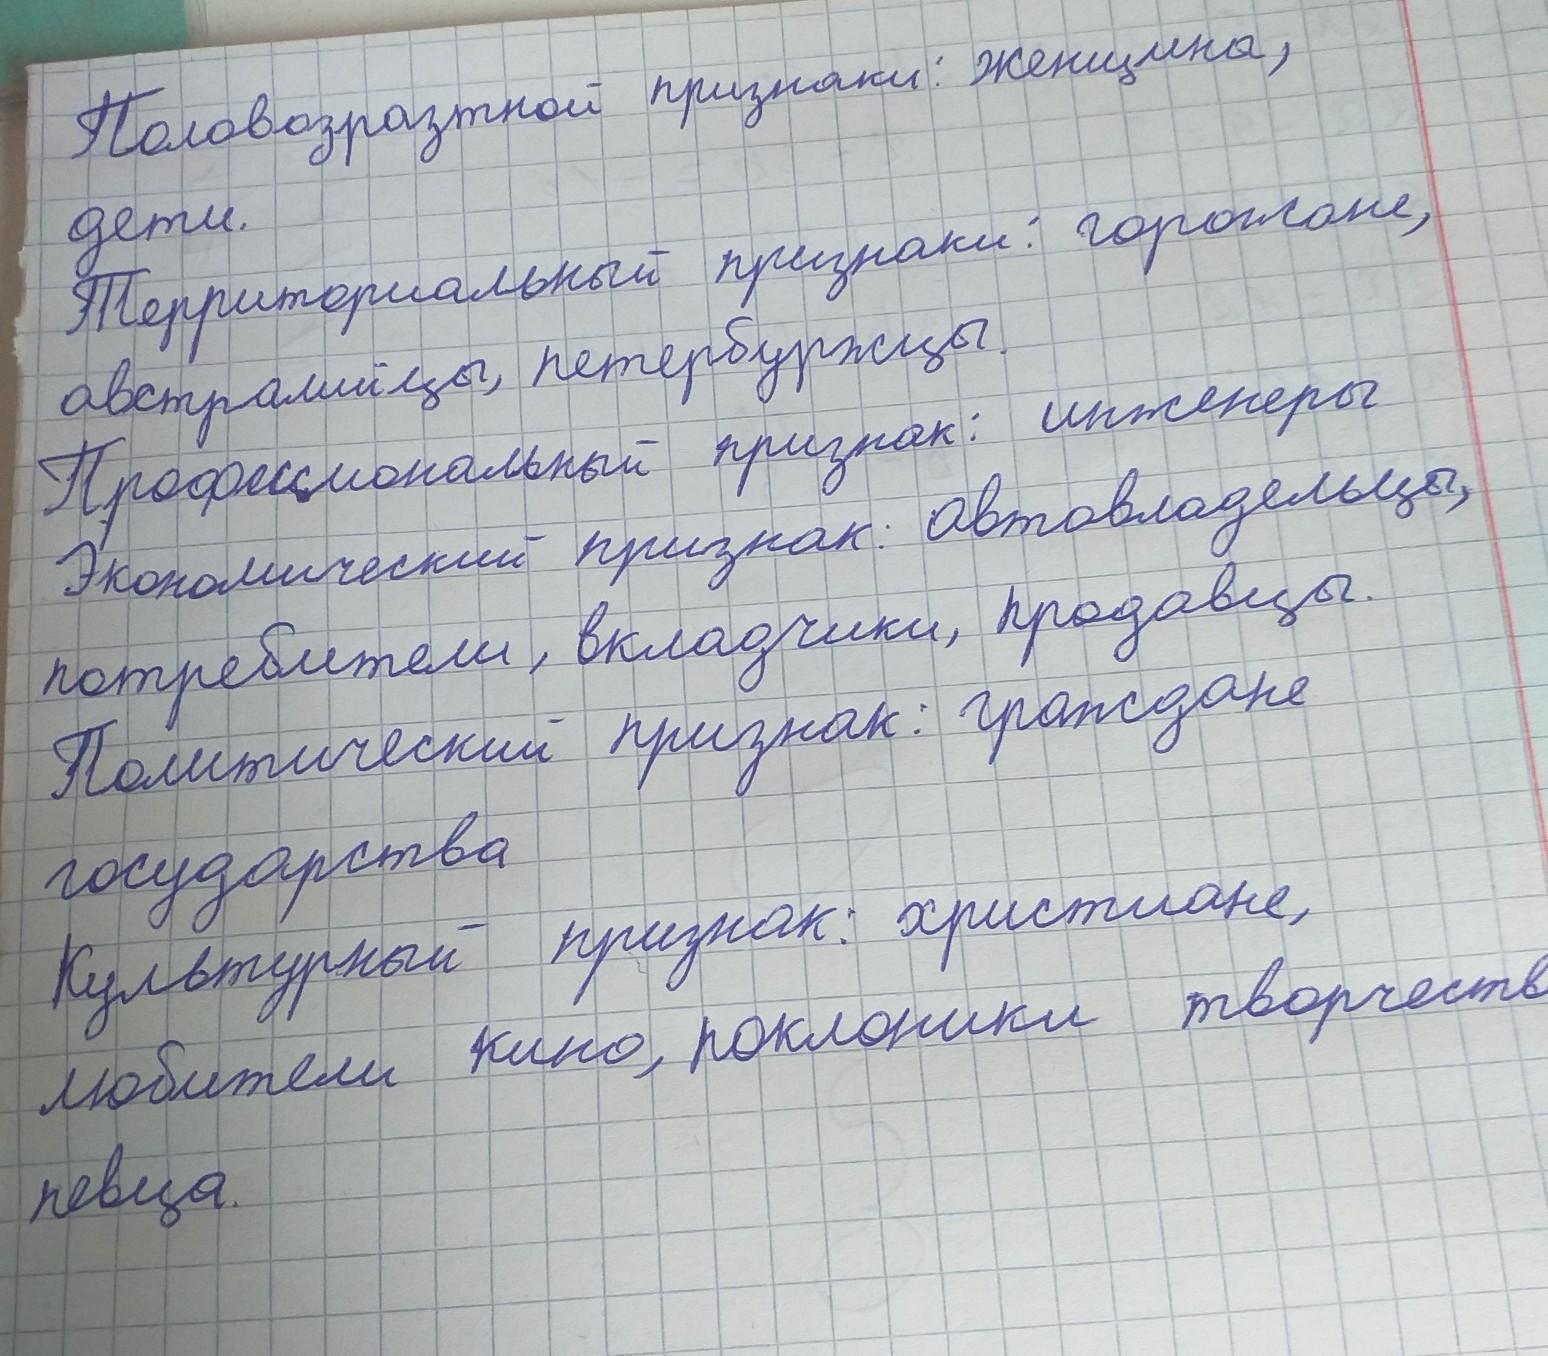 Половозразтной признаки: женщина,
дети.
Территориальный признаки: горожане,
австралийцы, петербуржцы.
Профессиональный признак: инженеры
Экономический признак: автовладельцы,
потребители, вкладчики, продавцы.
Политический признак: граждане
государства
Культурный признак: христиане,
любители кино, поклоники творчеств
певца.